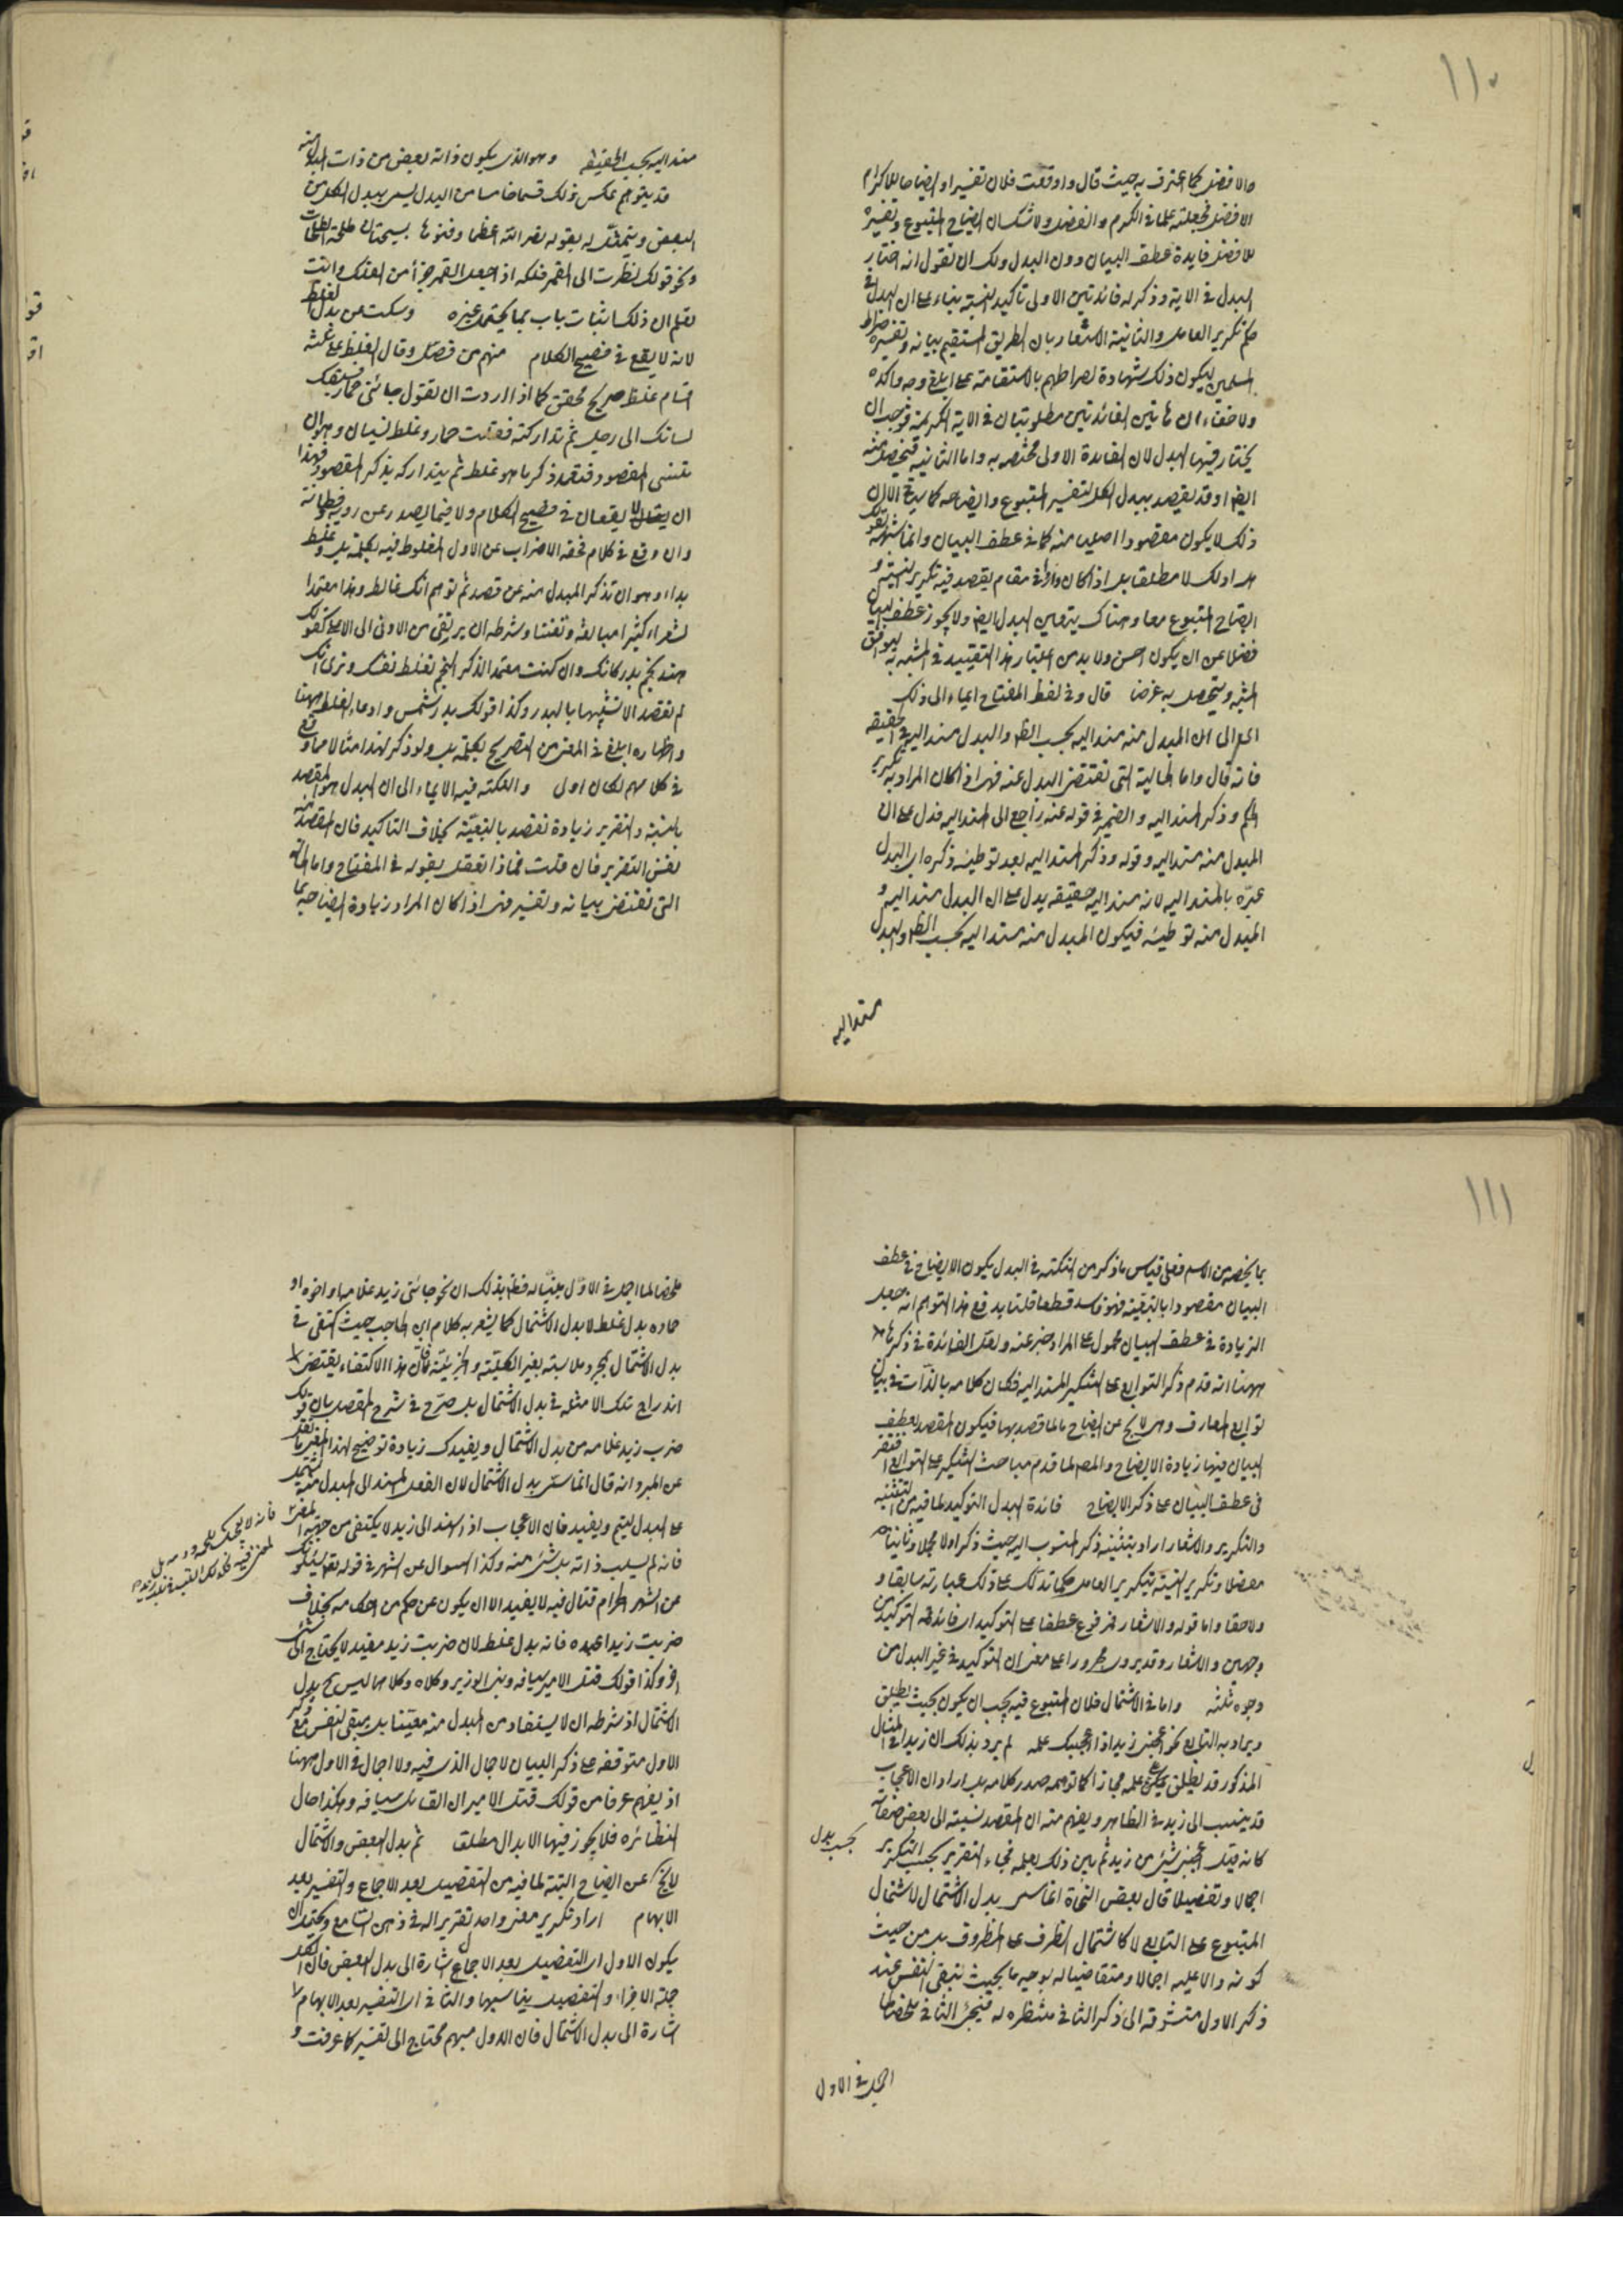 ١١٠
والافضل كما اعترف به حيث قال واوقعت فلان تفسيرا وايضاحا للاكرم
الافضل فجعلته علما في الكرم والفضل ولا شك ان ايضاح المتبوع وتفسيره
للافضل فايدة عطف البيان دون البدل ولك ان تقول انه اختار
البدل في الاية وذكر له فائدتين الاولى تأكيد النسبة بناء على ان البدل في
حكم تكرير العامل والثانية الاشعار بان الطريق المستقيم بيانه وتفسيره صراط
المسلمين ليكون ذلك شهادة لصراطهم بالاستقامة على ابلغ وجه واكده
ولا خفاء ان هاتين الفائدتين مطلوبتان في الاية الكريمة فوجب ان
يختار فيها البدل لان الفايدة الاولى مختصة به واما الثانية فتحصل منه
ايضا وقد يقصد ببدل الكل تفسير المتبوع وايضاحه كما مر الا ان
ذلك لا يكون مقصودا اصليا منه كما في عطف البيان وانما شبهه بقولك
هل ادلك لا مطلقا بل اذا كان واردا في مقام يقصد فيه تكرير النسبة و
ايضاح المتبوع معا وهناك يتعين البدل ايضا ولا يجوز عطف البيان
فضلا عن ان يكون احسن ولا بد من اعتبار هذا التقييد في المشبه به ليوافق
المشبه ويتحصل به غرضا قال وفي لفظ المفتاح ايماء الى ذلك
اي الى ان المبدل منه مسند اليه بحسب الظاهر والبدل مسند اليه في الحقيقة
فانه قال واما الحالة التي تقتضي البدل عنه فهي اذا كان المراد به تكرير
الحكم وذكر المسند اليه والضمير في قوله عنه راجع الى المسند اليه فدل على ان
المبدل منه مسند اليه وقوله وذكر المسند اليه بعد توطئة ذكره اي البدل
عبره بالمسند اليه لانه مسند اليه حقيقة يدل على ان البدل مسند اليه و
المبدل منه توطئة فيكون المبدل منه مسند اليه بحسب الظاهر والبدل
مسند اليه
مسند اليه بحسب الحقيقة وهو الذي يكون ذاته بعض من ذات المبدل منه
قد يتوهم عكس ذلك قسما خامسا من البدل ليس ببدل الكل من
البعض ويتمثل له بقوله نضر الله اعظما دفنوها بسجستان طلحة الطلحات
ونحو قولك نظرت الى القمر فلكه اذا جعل القمر جزأ من الفلك وانت
تعلم ان ذلك اثبات باب بما يحتمل غيره وسكت عن بدل الغلط
لانه لا يقع في فصيح الكلام منهم من فصل وقال الغلط على ثلثة
اقسام غلط صريح محقق كما اذا اردت ان تقول جائني حمار فسبقك
لسانك الى رجل ثم تداركته فقلت حمار وغلط نسيان وهو ان
تنسى المقصود فتعمد ذكر ما هو غلط ثم يتداركه بذكر المقصود فهذا
ان لا يقعان في فصيح الكلام ولا فيما يصدر عن روية وفطانة
وان وقع في كلام فحقه الاضراب عن الاول المغلوط فيه بكلمة بل وغلط
بداء وهو ان تذكر المبدل منه عن قصد ثم توهم انك غالط وهذا معتمد
الشعراء كثيرا مبالغة وتفننا وشرطه ان يرتقي من الادنى الى الاعلى كقولك
هند نجم بدر كانك وان كنت معتمد الذكر النجم تغلط نفسك وترى انك
لم تقصد الا تشبيهها بالبدر وكذا قولك بدر شمس وادعاء الغلط ههنا
واظهاره ابلغ في المعنى من التصريح بكلمة بل ولو ذكر لهذا مثالا مما وقع
في كلامهم لكان اولى والنكتة فيه الايماء الى ان البدل هو المقصد
بالنسبة والتقرير زيادة تقصد بالتبعية بخلاف التأكيد فان المقصد منه
نفس التقرير فان قلت فماذا تفعل بقوله في المفتاح واما الحالة
التي تقتضي بيانه وتفسيره فهي اذا كان المراد زيادة ايضاحه بما
١١١
بما يخصه من الاسم فعلى قياس ما ذكر من النكتة في البدل يكون الايضاح في عطف
البيان مقصودا بالتبعية فهو فاسد قطعا قلنا يدفع هذا التوهم انه جعل
الزيادة في عطف البيان محمول على المراد وخبر عنه ولعل الفائدة في ذكرها
ههنا انه قدم ذكر التوابع على التنكير المسند اليه فكان كلامه بالذات في بيان
توابع المعارف وهي لا يخ عن ايضاح ما لما قصد بها فيكون المقصد بعطف
البيان فيها زيادة الايضاح والمص لما قدم مباحث التنكير على التوابع اقتصر
في عطف البيان على ذكر الايضاح فائدة البدل التوكيد لما فيه من التثنية
والتكرير والاشعار اراد بتثنيه ذكر المنسوب اليه حيث ذكر اولا مجملا وثانيا
مفصلا وتكرير النسبة بتكرير العامل حكما تدلك على ذلك عبارته سابقا و
ولاحقا واما قوله والاشعار فمرفوع عطفا على التوكيد اي فائدته التوكيد من
وجهين والاشعار وقد يروى مجرورا على معنى ان التوكيد في غير البدل من
وجوه ثلثة واما في الاشتمال فلان المتبوع فيه يجب ان يكون بحيث يطلق
ويراد به التابع نحو اعجبني زيد اذا اعجبك علمه لم يرد بذلك ان زيدا في المثال
المذكور قد يطلق على علمه مجازا كما توهمه صدر كلامه بل اراد ان الاعجاب
قد ينسب الى زيد في الظاهر ويفهم منه ان المقصد نسبته الى بعض صفاته
كانه قيل اعجبني شئ من زيد ثم بين ذلك بعلمه فجاء التقرير بحسب التكرير
بحسب بدل
اجمالا وتفصيلا قال بعض النحاة انما سمي بدل الاشتمال لاشتمال
المتبوع على التابع لا كاشتمال الظرف على المظروف بل من حيث
كونه دالا عليه اجمالا ومتقاضيا له بوجه ما بحيث تبقى النفس عند
ذكر الاول متشوقة الى ذكر الثاني منتظرة له فيجئ الثاني ملخصا
اجمل في الاول
ملخصا لما اجمل في الاول مبينا له فظهر بذلك ان نحو جائني زيد غلامه او اخوه او
حماره بدل غلط لا بدل الاشتمال كما يشعر به كلام ابن الحاجب حيث اكتفى في
بدل الاشتمال بمجرد ملابسته بغير الكلية والجزئية فان هذا الاكتفاء يقتضي
اندراج تلك الامثلة في بدل الاشتمال بل صرح في شرح المفصل بان قولك
ضرب زيد غلامه من بدل الاشتمال ويفيدك زيادة توضيح لهذا المعنى ما نقل
عن المبرد انه قال انما سمي بدل الاشتمال لان الفعل المسند الى المبدل منه يشتمل
على البدل ليتم ويفيد فان الاعجاب اذا اسند الى زيد لا يكتفى من جهة المعنى
فانه لم يسلب ذاته بل شئ منه وكذا السوال عن الشهر في قوله تعالى يسئلونك
عن الشهر الحرام قتال فيه لا يفيد الا ان يكون عن حكم من احكامه بخلاف
ضربت زيدا عبده فانه بدل غلط لان ضربت زيد مفيد لا يحتاج الى شئ
اخر وكذا قولك قتل الامير سيافه وبنى الوزير وكلاؤه وكلاهما ليس ببدل
الاشتمال اذ شرطه ان لا يستفاد من المبدل منه معينا بل يبقى النفس مع ذكر
الاول متوقفة على ذكر البيان لاجمال الذي فيه ولا اجمال في الاول ههنا
اذ يفهم عرفا من قولك قتل الامير ان القاتل سيافه وهكذا حال
نظائره فلا يجوز فيها الابدال مطلقا ثم بدل البعض والاشتمال
لا يخ عن ايضاح البتة لما فيه من التفصيل بعد الاجمال والتفسير بعد
الابهام اراد تكرير معنى واحد تقريرا له في ذهن السامع ويحتمل ان
يكون الاول اي التفصيل بعد الاجمال اشارة الى بدل البعض فان الكل
جملة الاجزاء والتفصيل يناسبها والثاني اي التفسير بعد الابهام
اشارة الى بدل الاشتمال فان الاول مبهم محتاج الى تفسير كما عرفت و